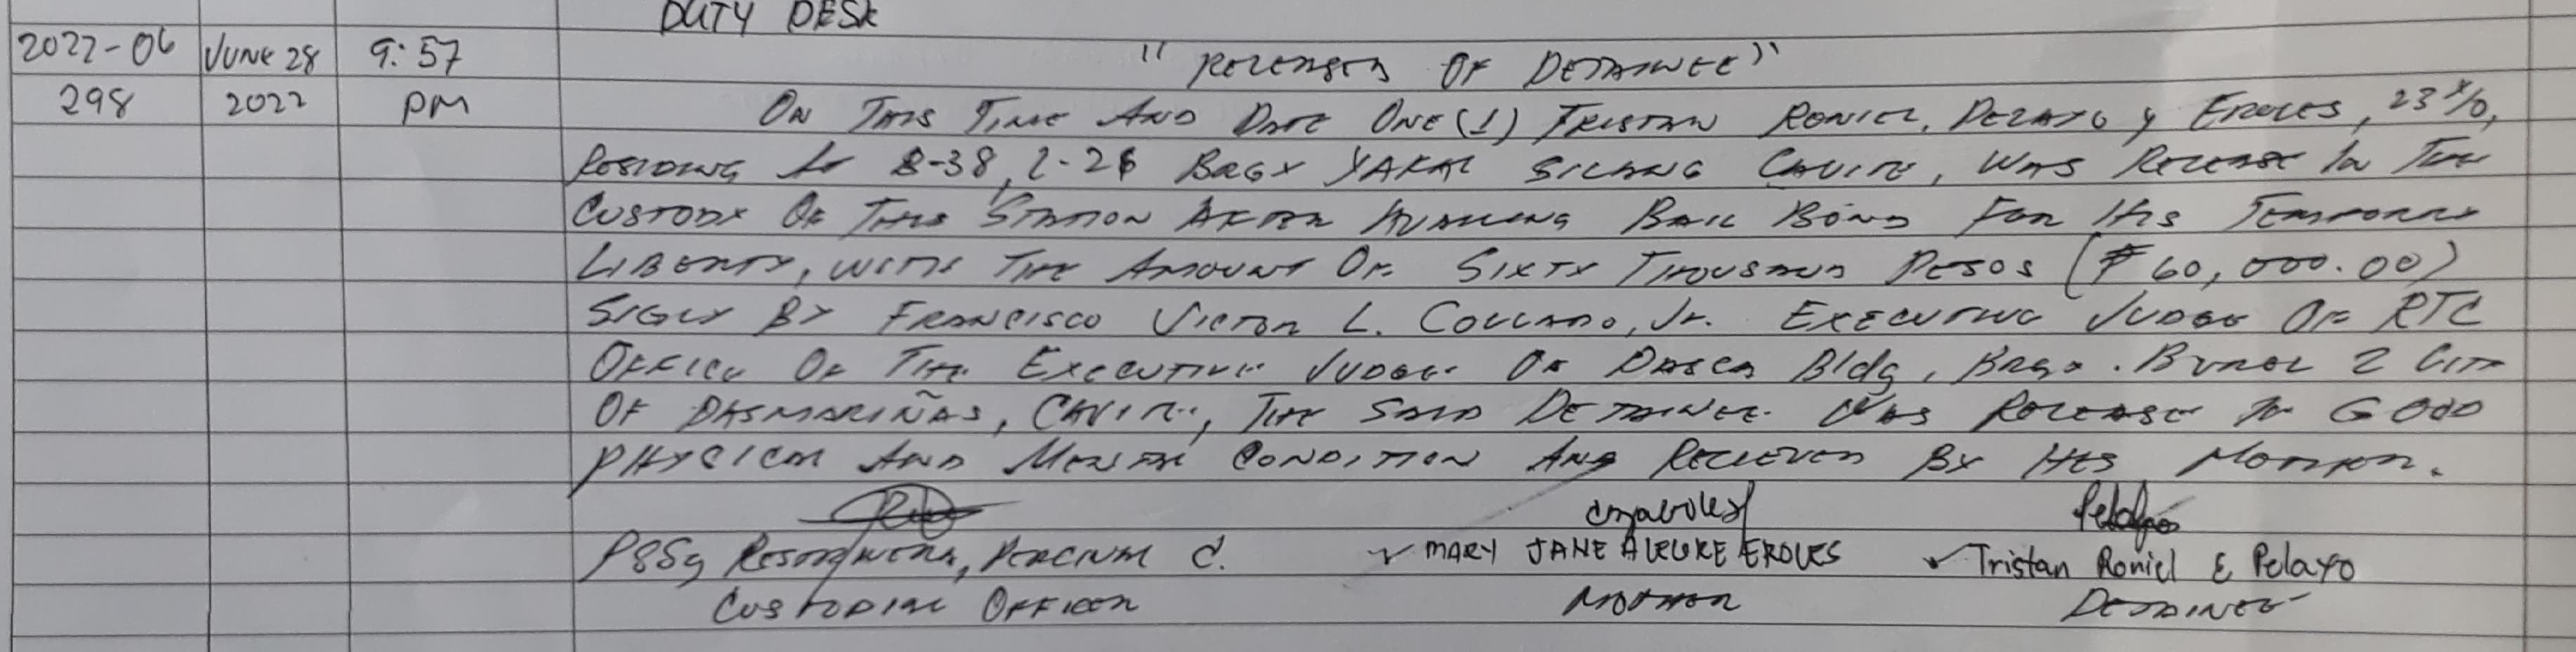 DUTY DESK
2022-06 JUNE 28 9:57 " RELEASED OF DETAINEE"
298 2022 PM ON THIS TIME AND DATE ONE (1) TRISTAN RONIEL, PELAYO y EROLES, 23 Y/O,
RESIDING AT B-38, L-26 BRGY YAKAL SILANG CAVITE, WAS RELEASE IN THE
CUSTODY OF THIS STATION AFTER AVAILING BAIL BOND FOR HIS TEMPORARY
LIBERTY, WITH THE AMOUNT OF SIXTY THOUSAND PESOS (₱ 60,000.00)
BY FRANCISCO VICTOR L. COLLADO, Jr. EXECUTIVE JUDGE OF RTC
OFFICE OF THE EXECUTIVE JUDGE OF DASCA Bldg, BRGY. BUROL 2 CITY
OF DASMARIÑAS, CAVITE, THE SAID DETAINEE WAS RELEASE IN GOOD
PHYSICAL AND MENTAL CONDITION AND RECIEVED BY HIS MOTHER.
PSSg PERCIVAL C. MARY JANE EROLES Tristan Roniel E Pelayo
CUSTODIAL OFFICER MOTHER DETAINEE